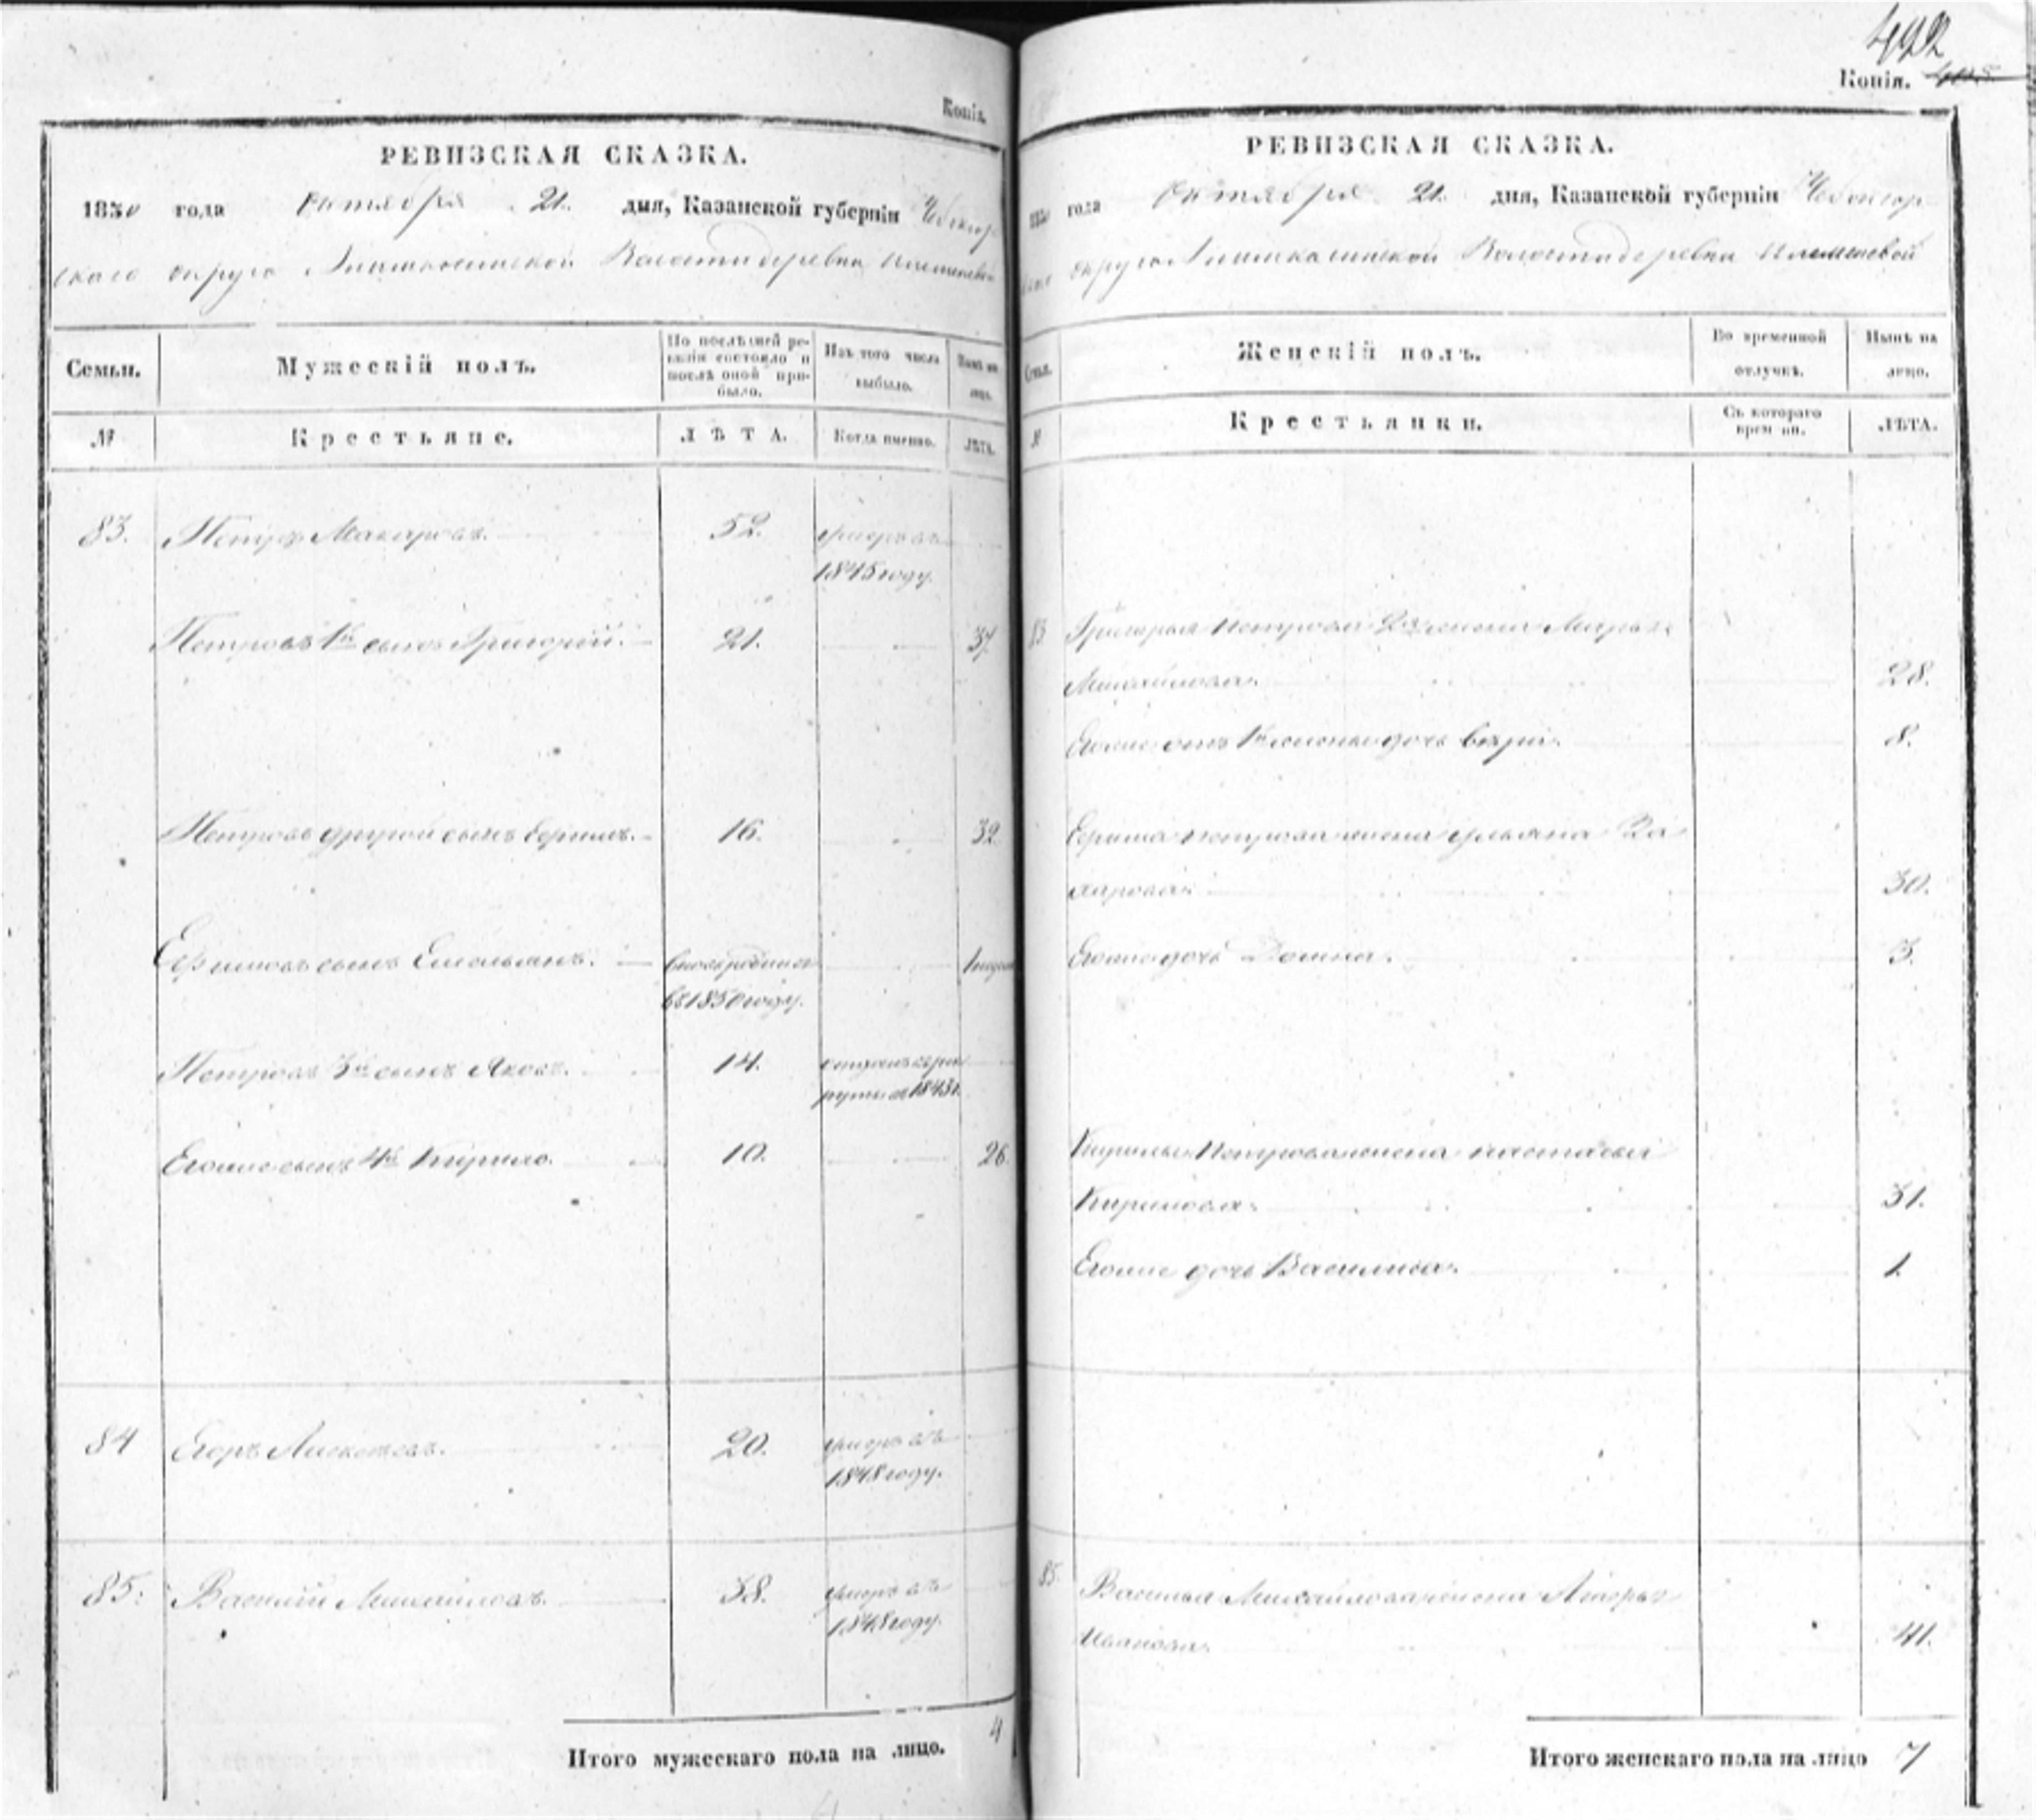 Копія.
РЕВИЗСКАЯ СКАЗКА.
1850 года Октября 21. дня, Казанской губерніи Чебоксар
скаго округа Волости деревни
Семьи.
Мужескій полъ.
По послѣдней ре-
визіи состояло и
послѣ оной при-
было.
Изъ того числа
выбыло.
Нынѣ на
лицо.
№
Крестьяне.
ЛѢТА.
Когда именно.
ЛѢТА.
83. Петръ Макаровъ. 52. умеръ въ
1845 году.
Петровъ 1й сынъ Григорій. 21. 37
Петровъ другой сынъ Ефимъ. 16. 32.
Ефимовъ сынъ Емельянъ. 
въ 1850 году.
Петровъ 3й сынъ Яковъ. 14. отданъ въ рек
руты въ 1843г.
Егоже сынъ 4й Кирило. 10. 26.
84 Егоръ 20. умеръ въ
1848 году.
85. Василій Михайловъ. 38. умеръ въ
1848 году.
Итого мужескаго пола на лицо. 4
492
Копія.
РЕВИЗСКАЯ СКАЗКА.
1850 года Октября 21. дня, Казанской губерніи Чебоксар
скаго округа Волости деревни
Семьи.
Женскій полъ.
Во временной
отлучкѣ.
Нынѣ на
лицо.
№
Крестьянки.
Съ котораго
времени.
ЛѢТА.
83 Григорья Петрова 2я жена Марья
Михайлова. 28.
Егоже отъ 1й жены дочь 8.
Ефима Петрова жена Ульяна За
харова. 30.
Егоже дочь Домна. 3.
Кирилы Петрова жена Настасья
Кирилова. 31.
Егоже дочь Василиса. 1.
85. Василья Михайлова жена
Иванова. 41.
Итого женскаго пола на лицо 7